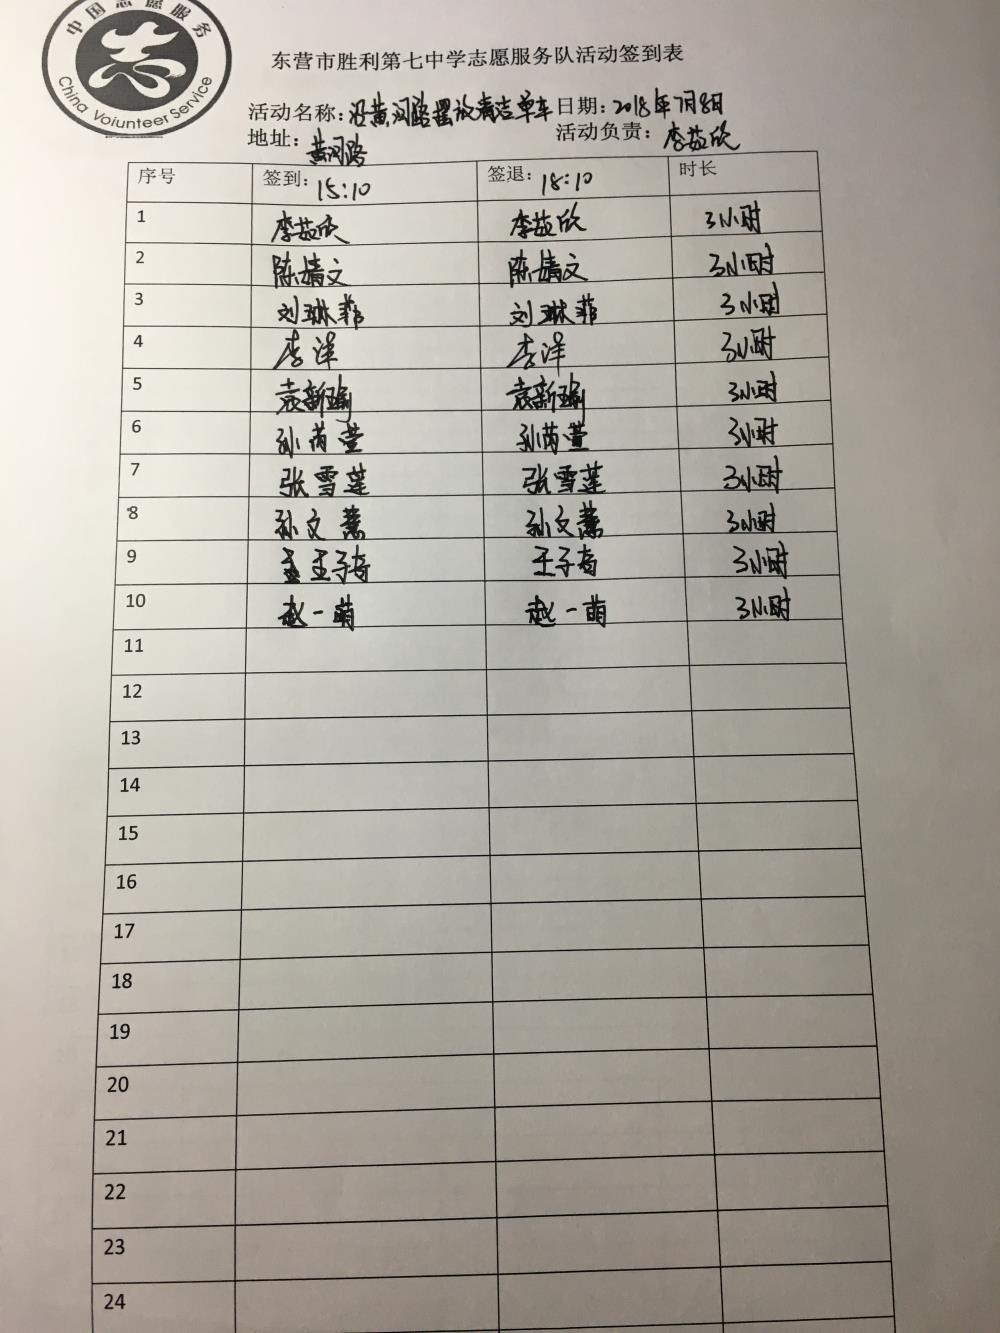 中国志愿服务
China Volunteer Service
东营市胜利第七中学志愿服务队活动签到表
活动名称:沿黄河路摆放清洁单车 日期:2018年7月8日
地址:黄河路 活动负责:李敬欣
序号 签到:15:10 签退:18:10 时长
1 李敬欣 李敬欣 3小时
2 陈婧文 陈婧文 3小时
3 刘琳菲 刘琳菲 3小时
4 李洋 李洋 3小时
5 袁新瑜 袁新瑜 3小时
6 孙芮萱 孙芮萱 3小时
7 张雪莲 张雪莲 3小时
8 孙文 孙文 3小时
9 王子奇 王子奇 3小时
10 赵一萌 赵一萌 3小时
11
12
13
14
15
16
17
18
19
20
21
22
23
24